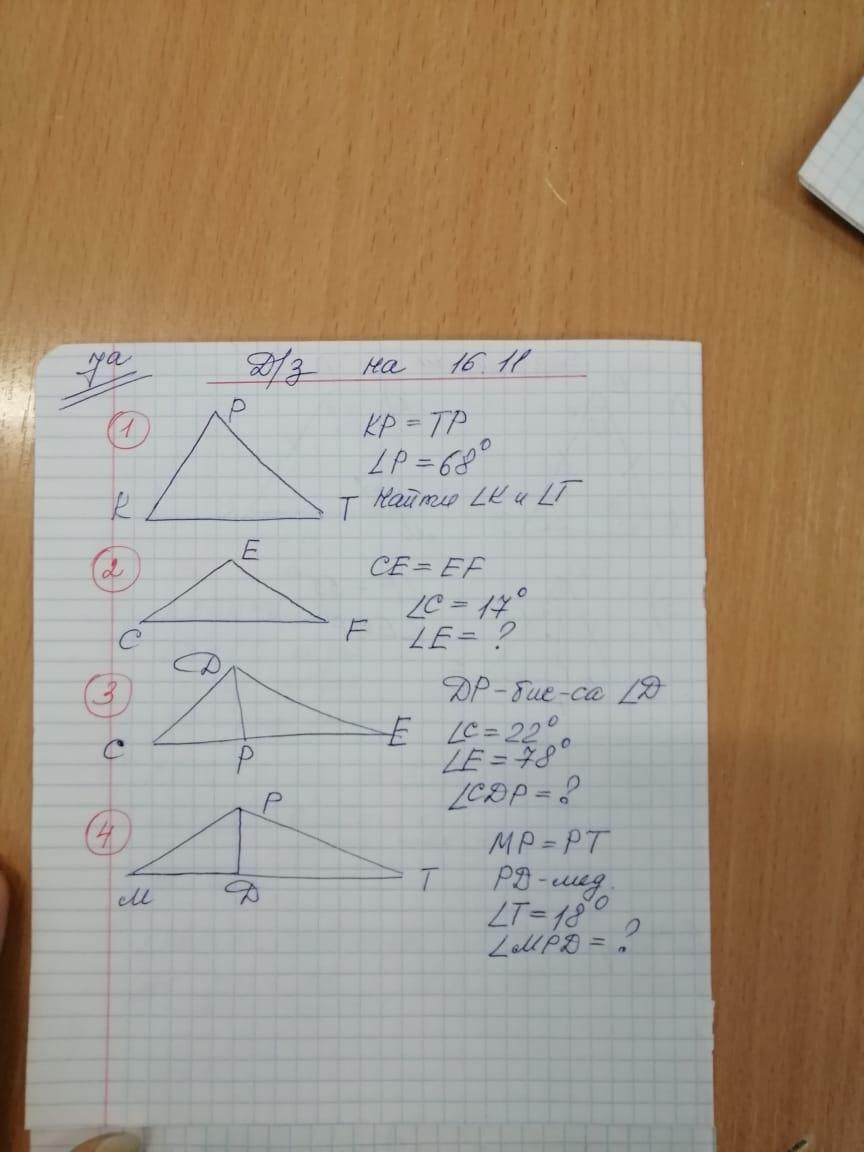 7а
Д/з на 16.11
1
P
K
T
KP = TP
∠P = 68°
Найти ∠K и ∠T
2
E
C
F
CE = EF
∠C = 17°
∠E = ?
3
D
C
P
E
DP - бис-са ∠D
∠C = 22°
∠E = 78°
∠CDP = ?
4
P
M
D
T
MP = PT
PD - мед.
∠T = 18°
∠MPD = ?